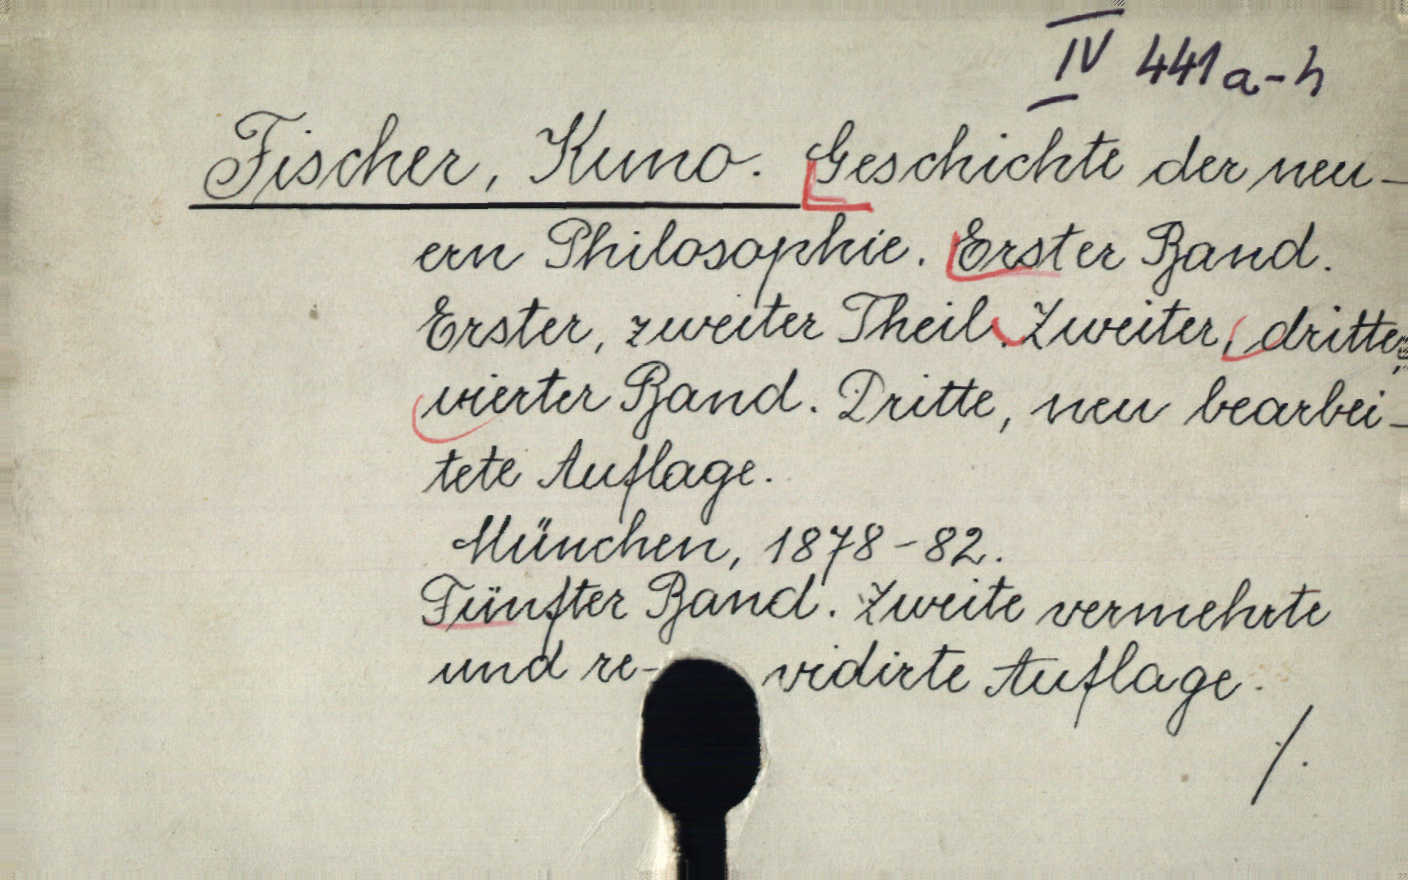 IV 441a-h
Fischer, Kuno. Geschichte der neu-
ern Philosophie. Erster Band.
Erster, zweiter Theil. Zweiter, dritter,
vierter Band. Dritte, neu bearbei-
tete Auflage.
München, 1878-82.
Fünfter Band. Zweite vermehrte
und re- vidirte Auflage.
/.